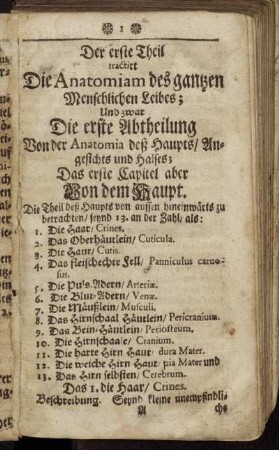 1
Der erste Theil
tractirt
Die Anatomiam des gantzen
Menschlichen Leibes;
Und zwar
Die erste Abtheilung
Von der Anatomia deß Haupts/ An-
gesichts und Halses;
Das erste Capitel aber
Von dem Haupt.
Die Theil deß Haupts von aussen hineinwärts zu
betrachten/ seynd 13. an der Zahl, als:
1. Die Haar/ Crines.
2. Das Oberhäutlein/ Cuticula.
3. Die Haut/ Cutis.
4. Das fleischechte Fell/ Panniculus carno-
sus.
5. Die Puls-Adern/ Arteriæ.
6. Die Blut-Adern/ Venæ.
7. Die Mäußlein/ Musculi.
8. Das Hirnschaal Häutlein/ Pericranium.
9. Das Bein-Häutlein/ Periosteum.
10. Die Hirnschaale/ Cranium.
11. Die harte Hirn Haut/ dura Mater.
12. Die weiche Hirn Haut/ pia Mater und
13. Das Hirn selbsten/ Cerebrum.
Das 1. die Haar/ Crines.
Beschreibung. Seynd kleine unempfindli-
A che